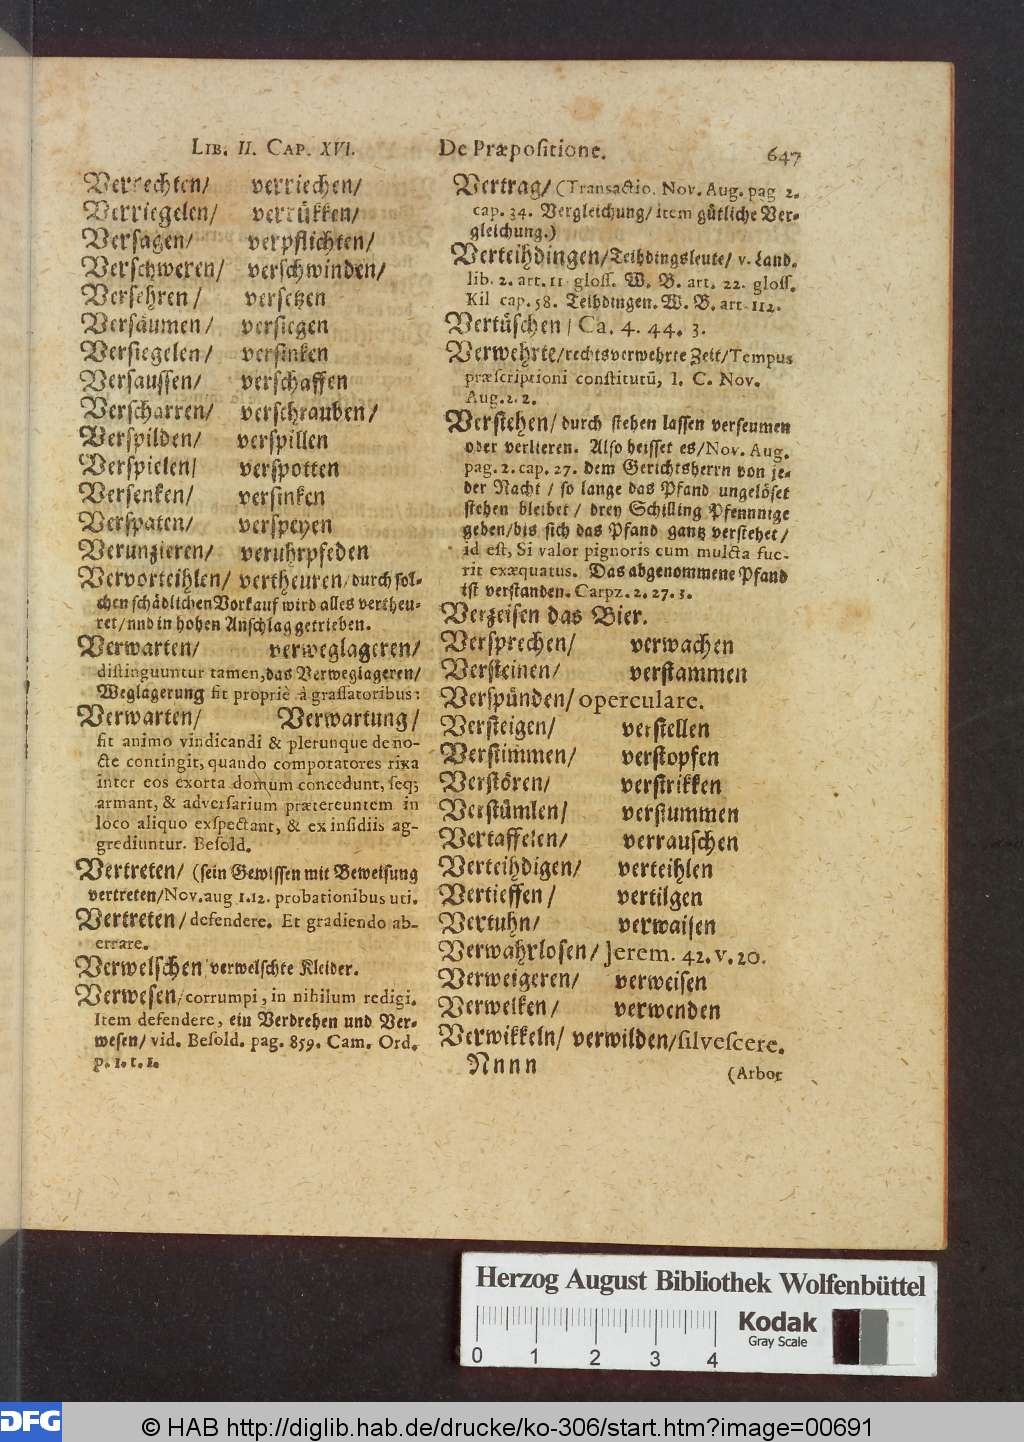 LIB. II. CAP. XVI. De Præpositione. 647
Verrechten/ verriechen/
Verriegelen/ verrükken/
Versagen/ verpflichten/
Verschweren/ verschwinden/
Versehren/ versetzen
Versäumen/ versiegen
Versiegelen/ versinken
Versaussen/ verschaffen
Verscharren/ verschrauben/
Verspilden/ verspillen
Verspielen/ verspotten
Versenken/ versinken
Verspaten/ verspeyen
Verunzieren/ veruhrpfeden
Vervorteihlen/ vertheuren/durch sol-
chen schädlichen Vorkauf wird alles vertheu-
ret/nnd in hohen Anschlag getrieben.
Verwarten/ verweglageren/
distinguuntur tamen, das Verweglageren/
Weglagerung fit propriè à grassatoribus:
Verwarten/ Verwartung/
fit animo vindicandi & plerunque de no-
cte contingit, quando compotatores rixa
inter eos exorta domum concedunt, seq;
armant, & adversarium prætereuntem in
loco aliquo exspectant, & ex insidiis ag-
grediuntur. Besold.
Vertreten/ (sein Gewissen mit Beweisung
vertreten/Nov. aug 1.12. probationibus uti.
Vertreten/ defendere. Et gradiendo ab-
errare.
Verwelschen verwelschte Kleider.
Verwesen/corrumpi, in nihilum redigi.
Item defendere, ein Verdrehen und Ver-
wesen/ vid. Besold. pag. 859. Cam. Ord.
p. 1. t. 1.
Vertrag/ (Transactio. Nov. Aug. pag 2.
cap. 34. Vergleichung/ item gütliche Ver-
gleichung.)
Verteihdingen/Teihdingsleute/ v. Land.
lib. 2. art. 11 gloss. W. B. art. 22. gloss.
Kil cap. 58. Teihdingen. W. B. art. 112.
Vertüschen/ Ca. 4. 44. 3.
Verwehrte/rechtsverwehrte Zeit/Tempus
præscriptioni constitutũ, l. C. Nov.
Aug. 2. 2.
Verstehen/ durch stehen lassen verseumen
oder verlieren. Also heisset es/Nov. Aug.
pag. 2. cap. 27. dem Gerichtsherrn von je-
der Nacht / so lange das Pfand ungelöset
stehen bleibet / drey Schilling Pfennnige
geben/bis sich das Pfand gantz verstehet/
id est, Si valor pignoris cum mulcta fue-
rit exæquatus. Das abgenommene Pfand
ist verstanden. Carpz. 2. 27. 3.
Verzeisen das Bier.
Versprechen/ verwachen
Versteinen/ verstammen
Verspünden/ operculare.
Versteigen/ verstellen
Verstimmen/ verstopfen
Verstören/ verstrikken
Verstümlen/ verstummen
Vertaffelen/ verrauschen
Verteihdigen/ verteihlen
Vertieffen/ vertilgen
Vertuhn/ verwaisen
Verwahrlosen/ Jerem. 42. v. 20.
Verweigeren/ verweisen
Verwelken/ verwenden
Verwikkeln/ verwilden/silvescere.
Nnnn (Arbor
Herzog August Bibliothek Wolfenbüttel
0 1 2 3 4
Kodak
Gray Scale
DFG
© HAB http://diglib.hab.de/drucke/ko-306/start.htm?image=00691